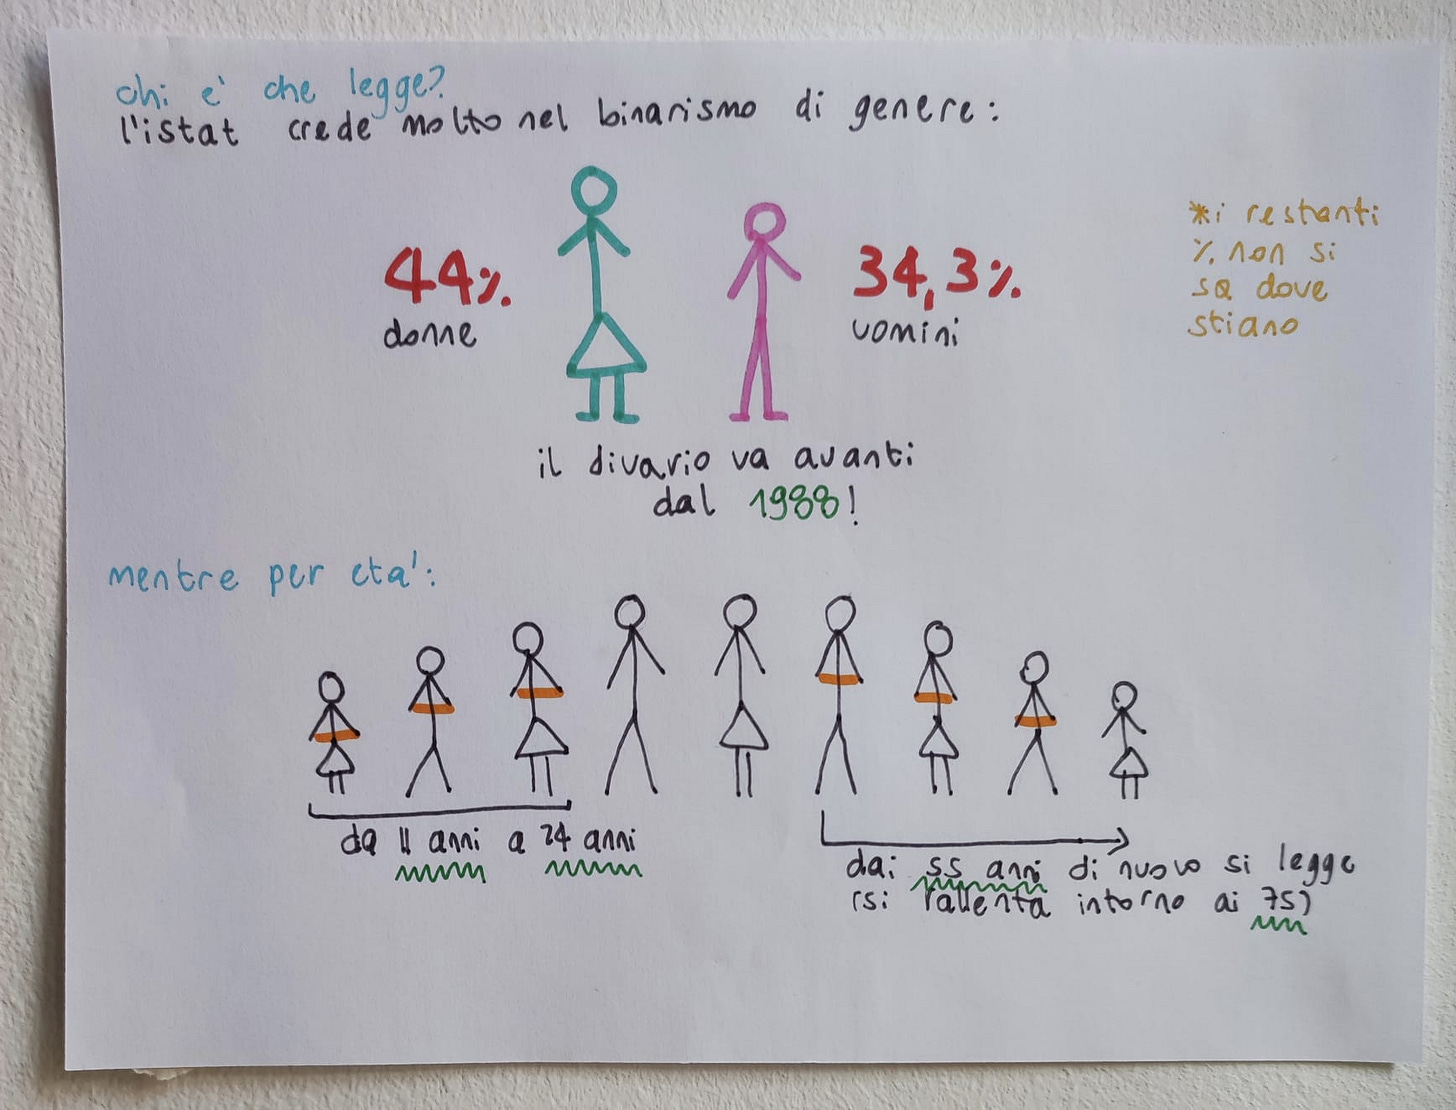 chi e' che legge?
l'istat crede molto nel binarismo di genere:
44%
donne
34,3%
uomini
*i restanti
% non si
sa dove
stiano
il divario va avanti
dal 1988!
mentre per eta':
da 11 anni a 24 anni
dai 55 anni di nuovo si legge
(si rallenta intorno ai 75)